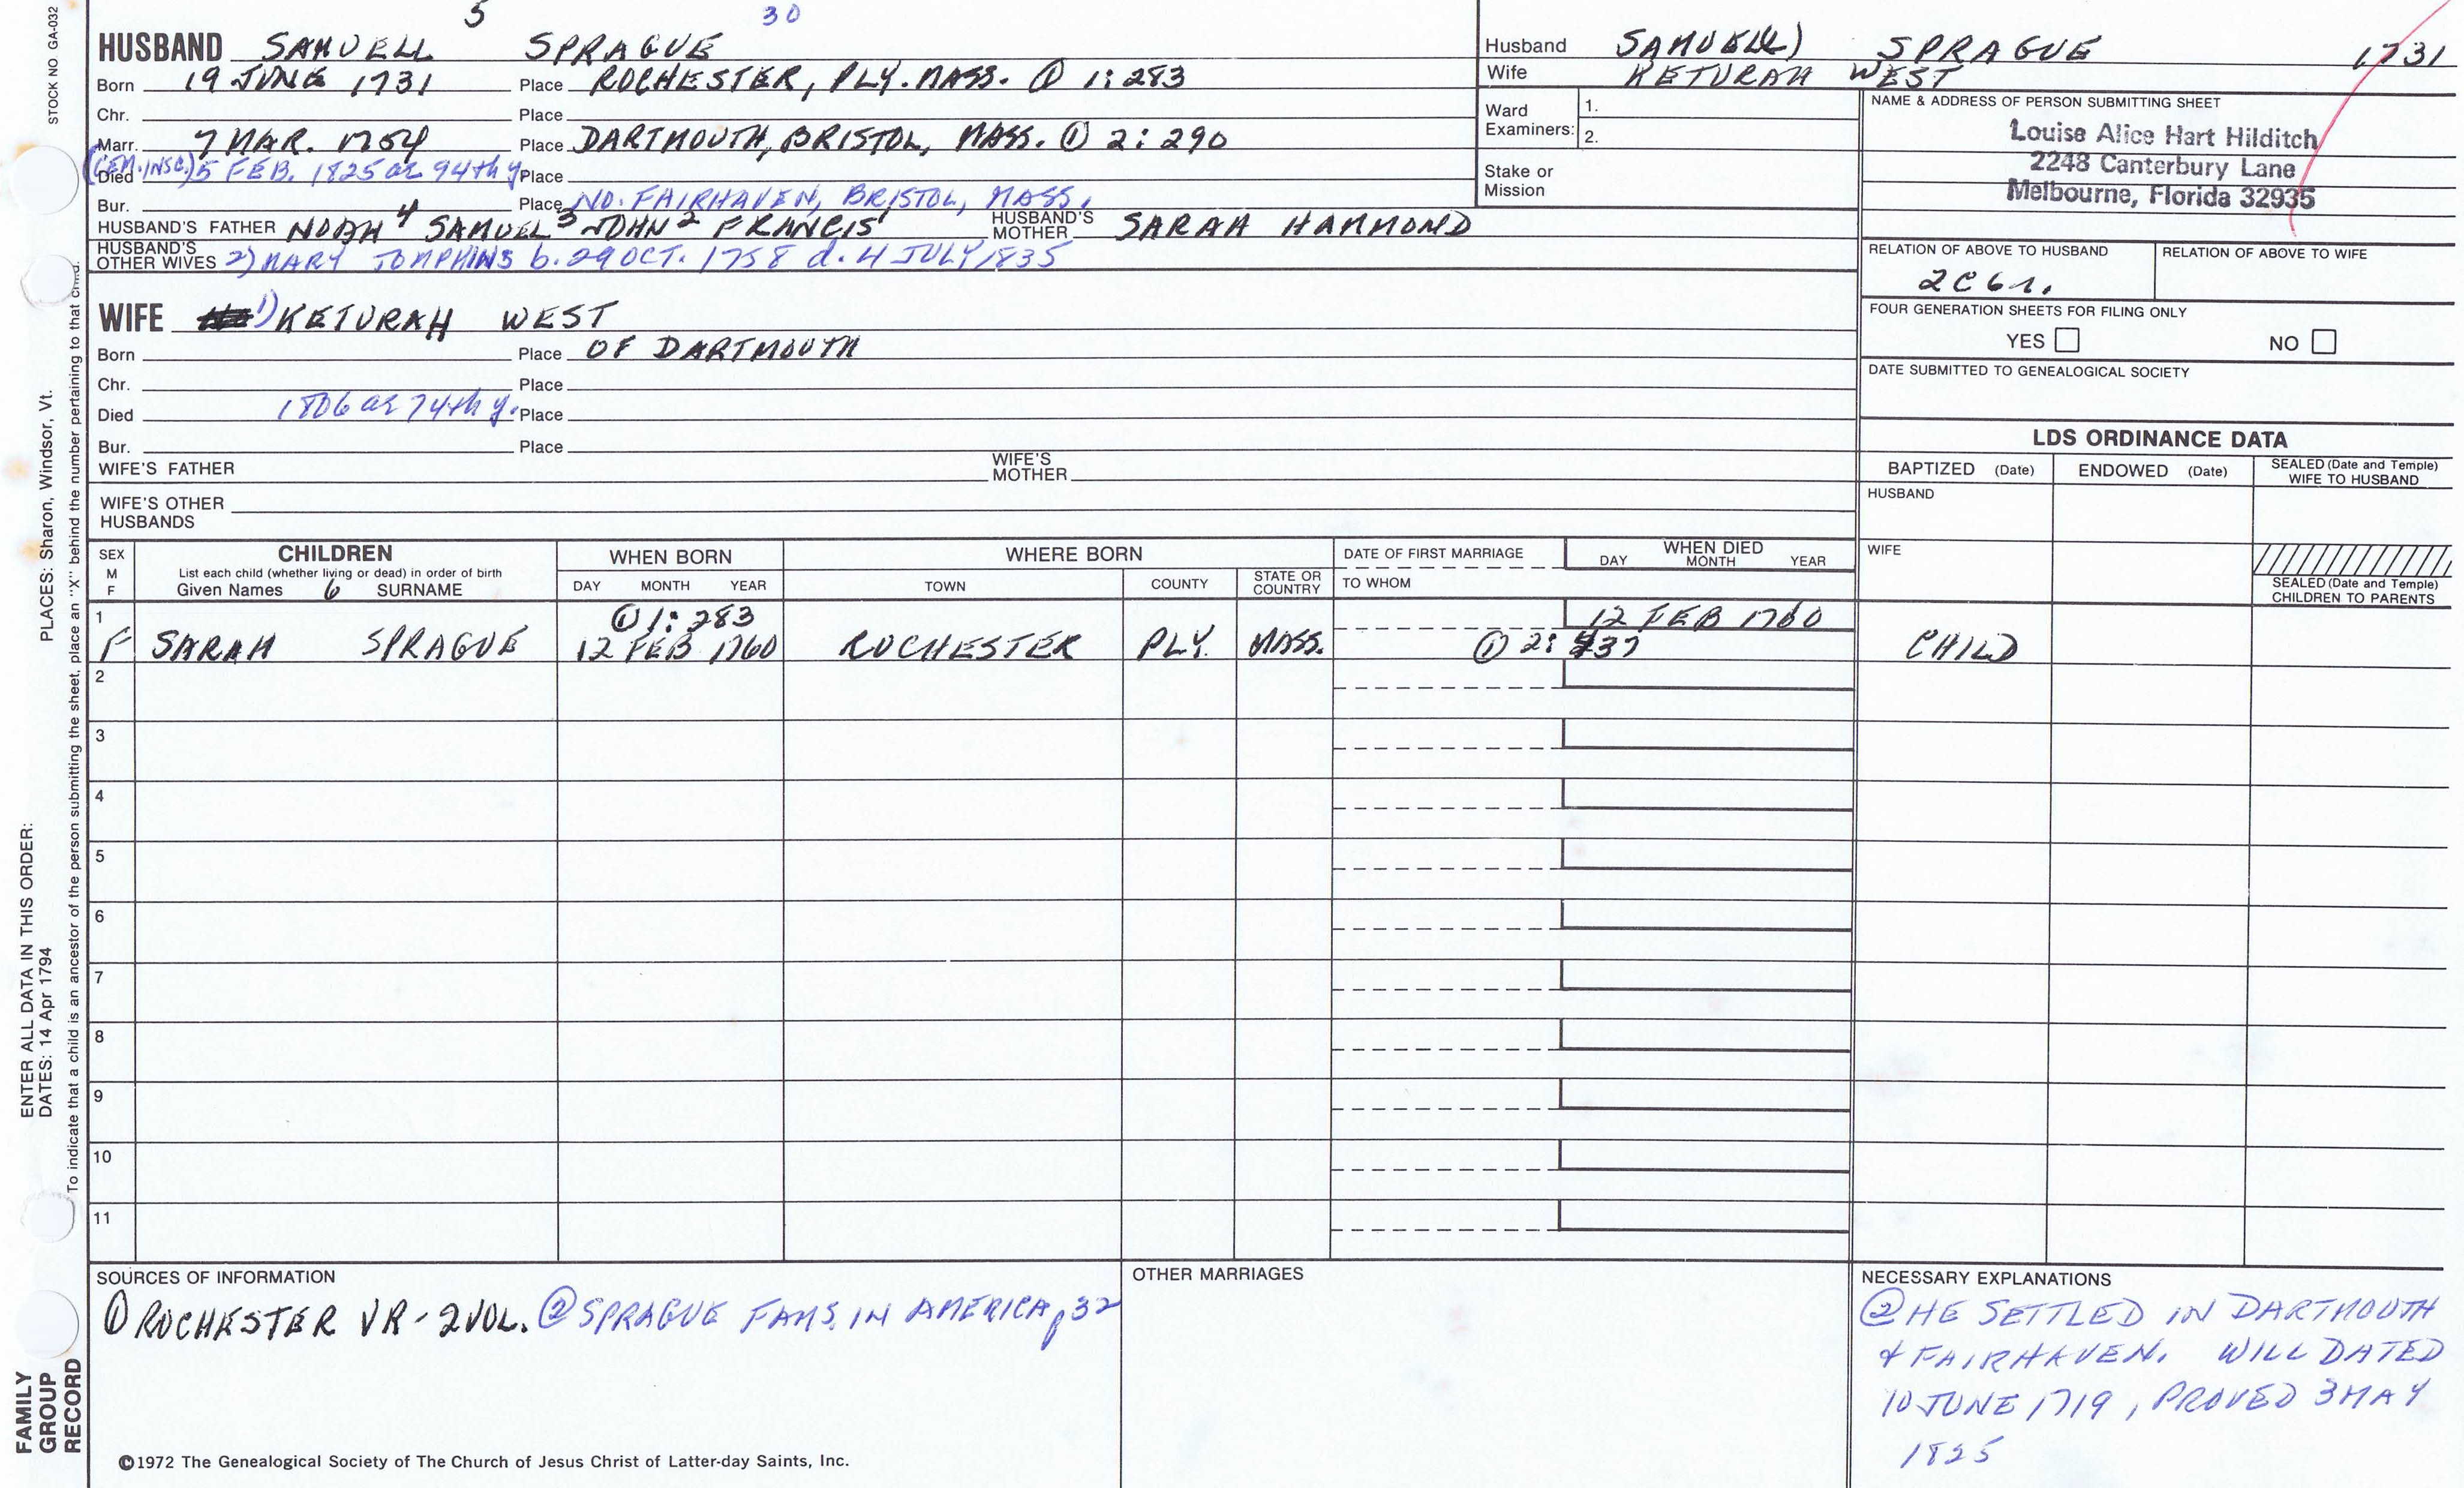 STOCK NO GA-032
5 30
HUSBAND SAMUELL SPRAGUE
Born 19 JUNE 1731 Place ROCHESTER, PLY. MASS. ① 1:283
Chr. Place
Marr. 7 MAR. 1754 Place DARTMOUTH, BRISTOL, MASS. ① 2:290
(CEM. INSC.)
Died 5 FEB. 1825 ae 94th y. Place
Bur. Place NO. FAIRHAVEN, BRISTOL, MASS.
HUSBAND'S FATHER NOAH 4 SAMUEL 3 JOHN 2 FRANCIS 1 HUSBAND'S MOTHER SARAH HAMMOND
HUSBAND'S OTHER WIVES 2) MARY TOMPKINS b. 29 OCT. 1758 d. 4 JULY 1835
WIFE 1) KETURAH WEST
Born Place OF DARTMOUTH
Chr. Place
Died 1806 ae 74th y. Place
Bur. Place
WIFE'S FATHER WIFE'S MOTHER
WIFE'S OTHER HUSBANDS
Husband SAMUELL) SPRAGUE 1731
Wife KETURAH WEST
Ward Examiners: 1.
2.
Stake or Mission
NAME & ADDRESS OF PERSON SUBMITTING SHEET
Louise Alice Hart Hilditch
2248 Canterbury Lane
Melbourne, Florida 32935
RELATION OF ABOVE TO HUSBAND RELATION OF ABOVE TO WIFE
2C6r.
FOUR GENERATION SHEETS FOR FILING ONLY
YES NO
DATE SUBMITTED TO GENEALOGICAL SOCIETY
LDS ORDINANCE DATA
BAPTIZED (Date) ENDOWED (Date) SEALED (Date and Temple) WIFE TO HUSBAND
HUSBAND
WIFE
SEALED (Date and Temple) CHILDREN TO PARENTS
SEX M F
CHILDREN
List each child (whether living or dead) in order of birth
Given Names 6 SURNAME
WHEN BORN
DAY MONTH YEAR
WHERE BORN
TOWN COUNTY STATE OR COUNTRY
DATE OF FIRST MARRIAGE
TO WHOM
WHEN DIED
DAY MONTH YEAR
1 ① 1:283 12 FEB 1760
F SARAH SPRAGUE 12 FEB 1760 ROCHESTER PLY. MASS. ① 2: 437 CHILD
2
3
4
5
6
7
8
9
10
11
SOURCES OF INFORMATION
① ROCHESTER VR - 2 VOL. ② SPRAGUE FAMS. IN AMERICA p32
OTHER MARRIAGES
NECESSARY EXPLANATIONS
② HE SETTLED IN DARTMOUTH
& FAIRHAVEN. WILL DATED
10 JUNE 1719, PROVED 3 MAY
1825
©1972 The Genealogical Society of The Church of Jesus Christ of Latter-day Saints, Inc.
FAMILY
GROUP
RECORD
ENTER ALL DATA IN THIS ORDER:
DATES: 14 Apr 1794 PLACES: Sharon, Windsor, Vt.
To indicate that a child is an ancestor of the person submitting the sheet, place an "X" behind the number pertaining to that child.